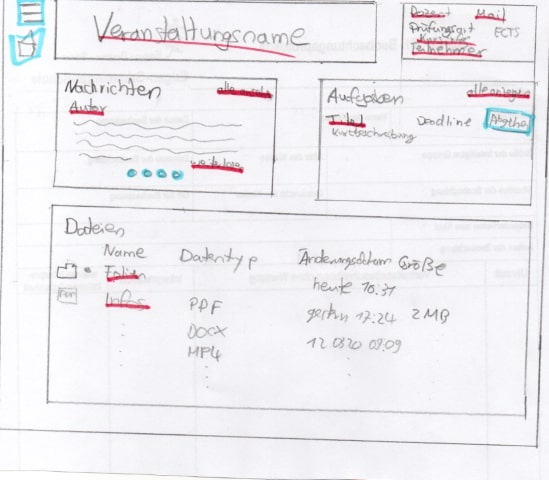 Veranstaltungsname
Dozent Mail
Prüfungsart ECTS
Teilnehmer
Nachrichten
Autor
weiterlesen
Aufgaben alle anzeigen
Titel Deadline Abgabe
Kurzbeschreibung
Dateien
Name Datentyp Änderungsdatum Größe
Folien heute 10:31
Infos PDF gestern 17:24 2MB
DOCX 12.0820 09:09
MP4